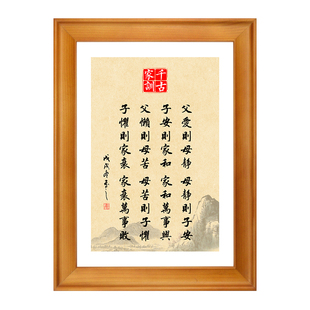 千古
家訓
父愛則母靜 母靜則子安
子安則家和 家和萬事興
父懶則母苦 母苦則子懼
子懼則家衰 家衰萬事敗
戊戌